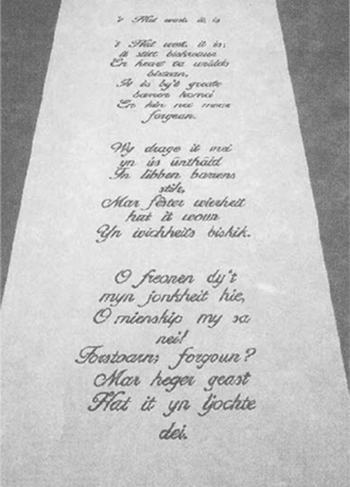 't Hat west, it is
't Hat west, it is;
it stiet biskreaun
En heart ta wrâlds
bistean,
It is by't greate
barren
En kin nea mear
forgean.
Wy drage it mei
yn ús ûnthâld
In libben barrens
stik,
Mar fêster wierheit
hat it woun
Yn ivichheits biskik.
O freonen dy't
myn jonkheit hie,
O mienskip my sa
nei!
Forstoarn; forgoun?
Mar heger geast
Hat it yn ljochte
dei.